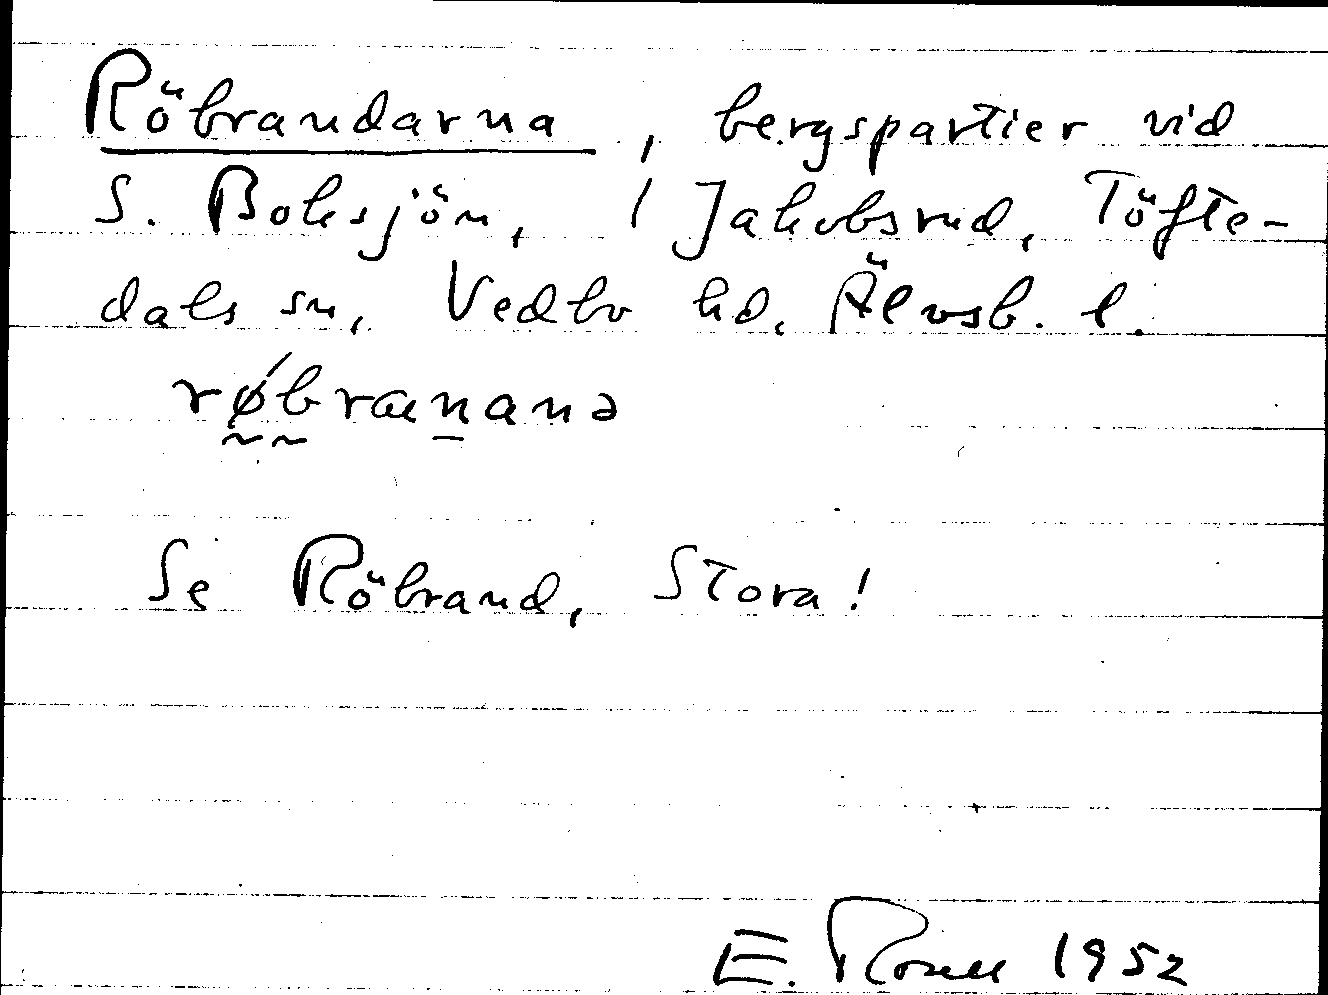 Röbrandarna, bergspartier vid
S. Boksjön, / Jakobsrud, Töfte-
dals sn, Vedbo hd, Älvsb. l.
røbrænanə
Se Röbrand, Stora!
E. Rosell 1952